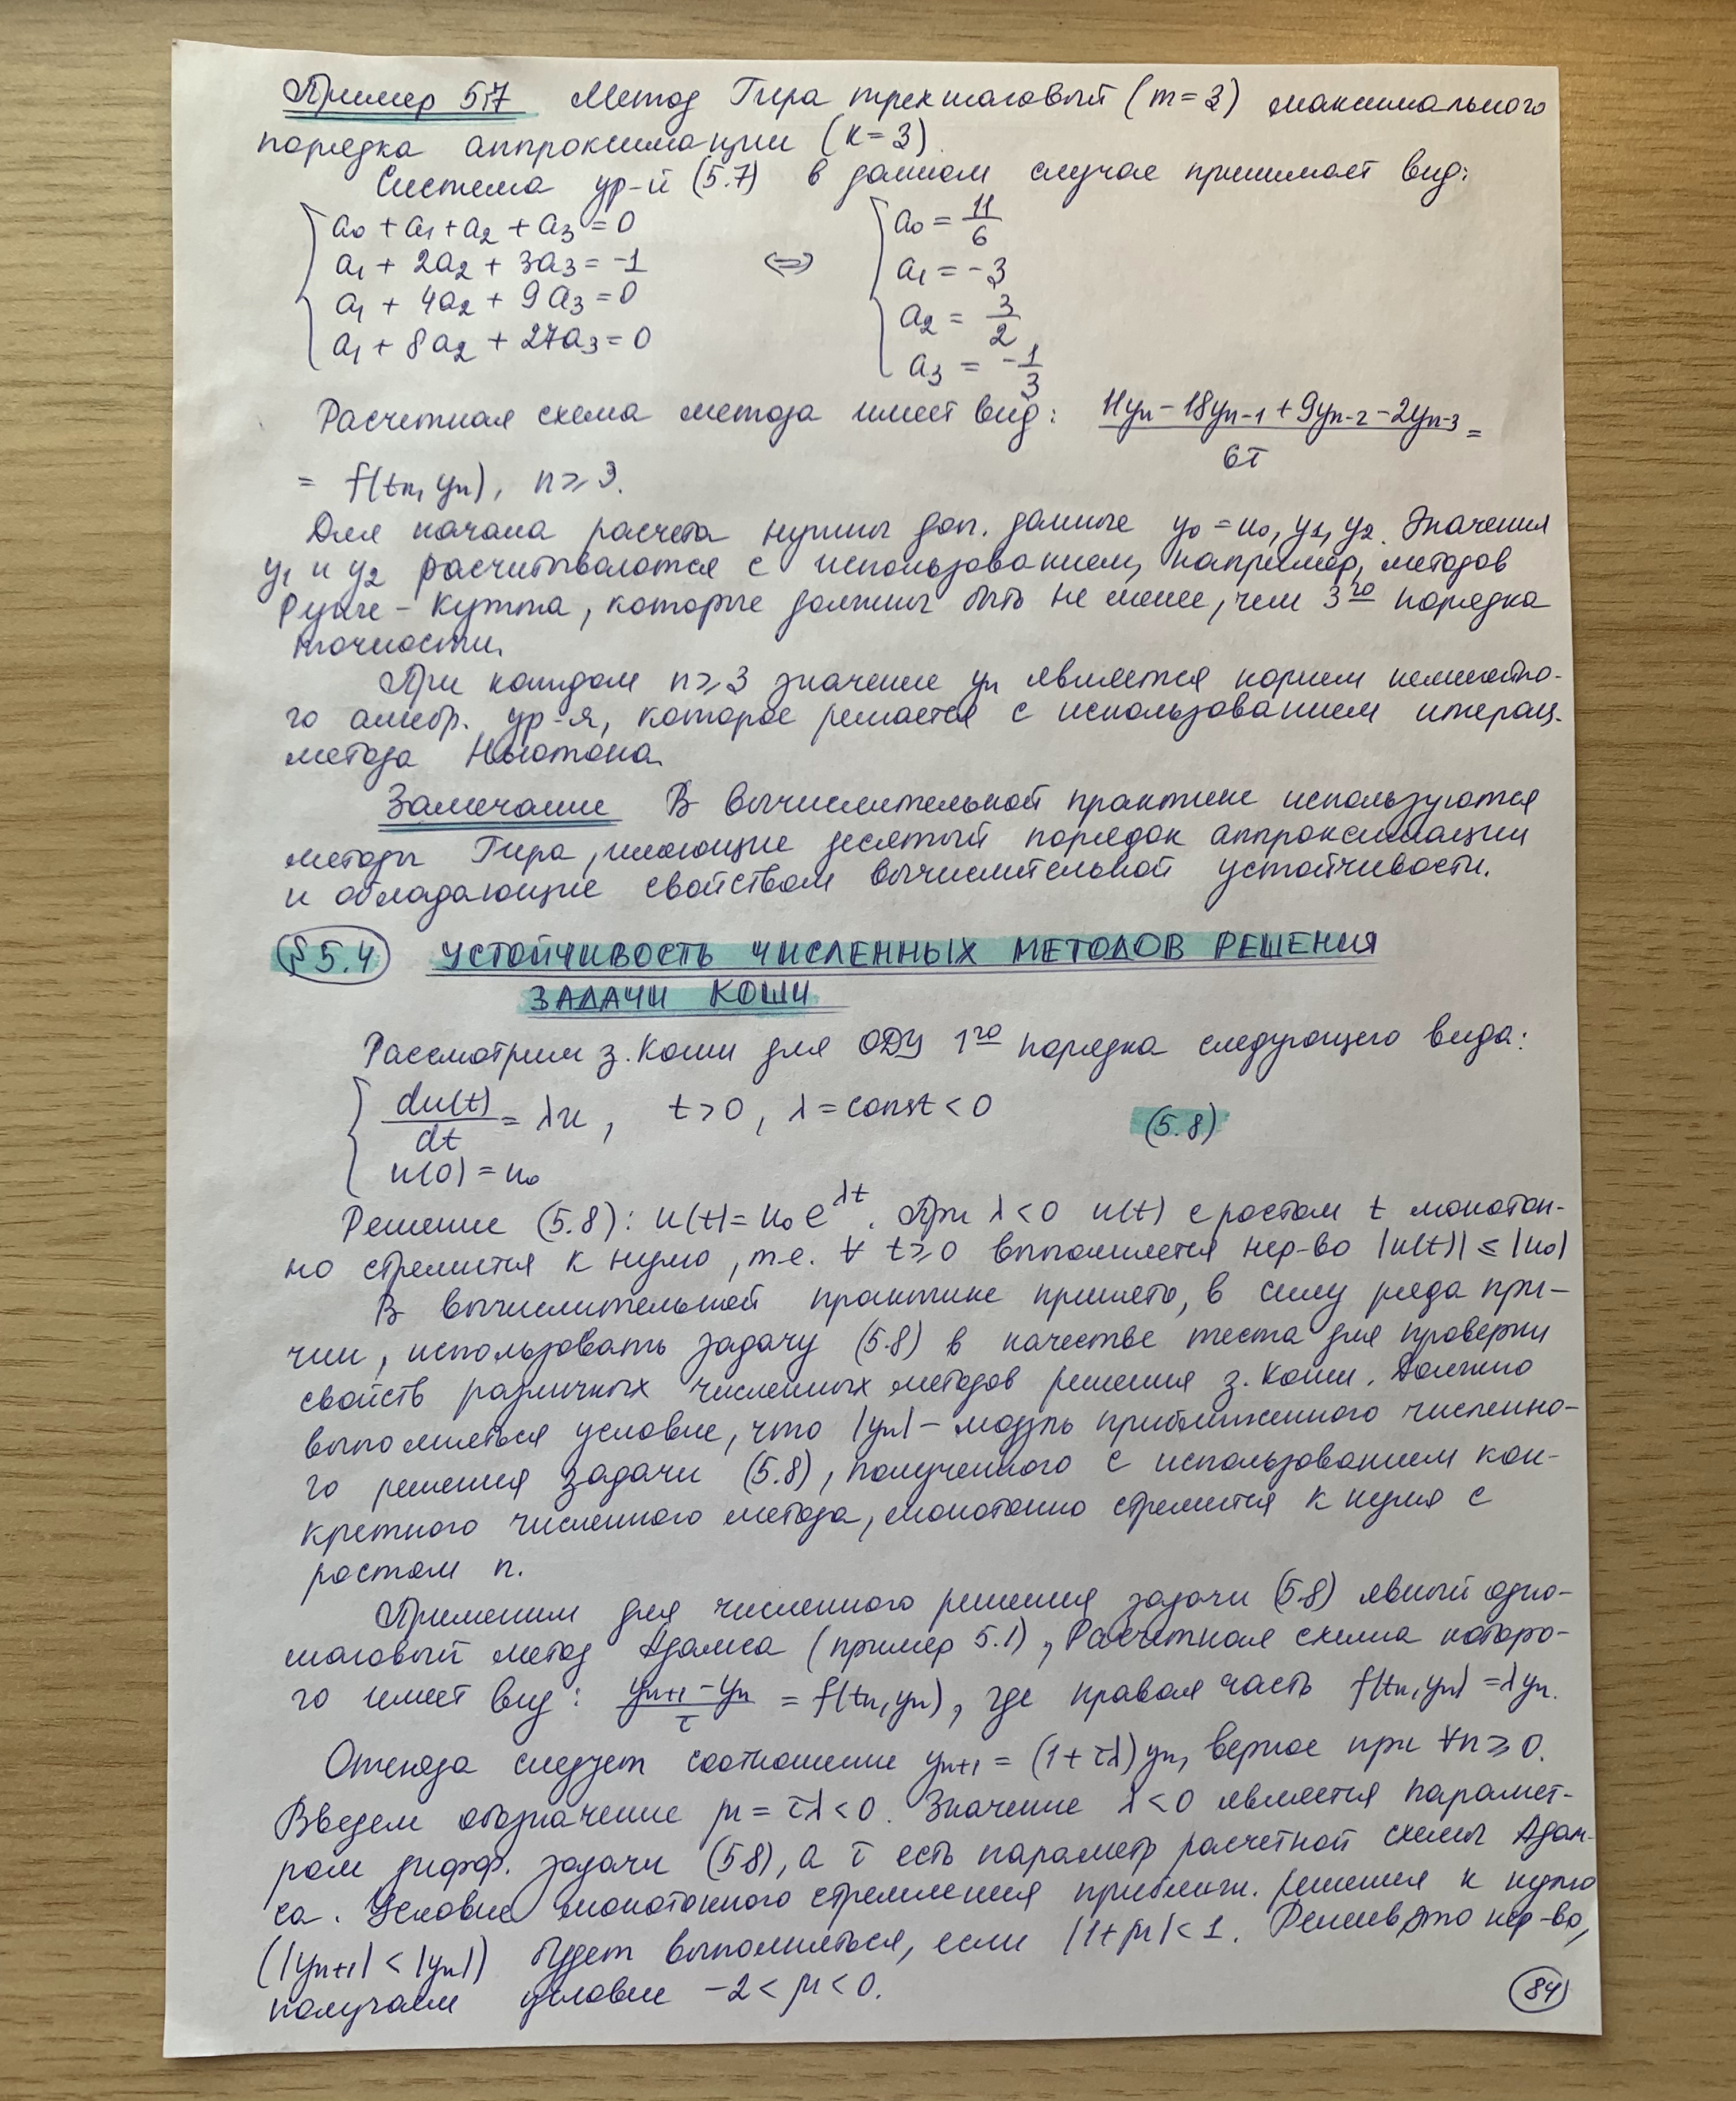 Пример 5.7 Метод Гира трехшаговый (m=3) максимального
порядка аппроксимации (k=3).
Система ур-й (5.7) в данном случае принимает вид:
{ a₀ + a₁ + a₂ + a₃ = 0 ⇔ { a₀ = 11/6
a₁ + 2a₂ + 3a₃ = -1 a₁ = -3
a₁ + 4a₂ + 9a₃ = 0 a₂ = 3/2
a₁ + 8a₂ + 27a₃ = 0 a₃ = -1/3
Расчетная схема метода имеет вид: (11yₙ - 18yₙ₋₁ + 9yₙ₋₂ - 2yₙ₋₃)/6τ =
= f(tₙ, yₙ), n ⩾ 3.
Для начала расчета нужны доп. данные y₀ = u₀, y₁, y₂. Значения
y₁ и y₂ расчитываются с использованием, например, методов
Рунге-Кутта, которые должны быть не менее, чем 3го порядка
точности.
При каждом n ⩾ 3 значение yₙ является корнем нелинейно-
го алгебр. ур-я, которое решается с использованием итерац.
метода Ньютона.
Замечание В вычислительной практике используются
методы Гира, имеющие десятый порядок аппроксимации
и обладающие свойством вычислительной устойчивости.
§ 5.4 УСТОЙЧИВОСТЬ ЧИСЛЕННЫХ МЕТОДОВ РЕШЕНИЯ
ЗАДАЧИ КОШИ
Рассмотрим з. Коши для ОДУ 1го порядка следующего вида:
{ du(t)/dt = λu, t > 0, λ = const < 0 (5.8)
u(0) = u₀
Решение (5.8): u(t) = u₀ e^λt. При λ < 0 u(t) с ростом t монотон-
но стремится к нулю, т.е. ∀ t ⩾ 0 выполняется нер-во |u(t)| ≤ |u₀|
В вычислительной практике принято, в силу ряда при-
чин, использовать задачу (5.8) в качестве теста для проверки
свойств различных численных методов решения з. Коши. Должно
выполняться условие, что |yₙ| – модуль приближенного численно-
го решения задачи (5.8), полученного с использованием кон-
кретного численного метода, монотонно стремится к нулю с
ростом n.
Применим для численного решения задачи (5.8) явный одно-
шаговый метод Адамса (пример 5.1), Расчетная схема которо-
го имеет вид: (yₙ₊₁ - yₙ)/τ = f(tₙ, yₙ), где правая часть f(tₙ, yₙ) = λyₙ.
Отсюда следует соотношение yₙ₊₁ = (1 + τλ)yₙ, верное при ∀n ⩾ 0.
Введем обозначение μ = τλ < 0. Значение λ < 0 является парамет-
ром дифф. задачи (5.8), а τ есть параметр расчетной схемы Адам-
са. Условие монотонного стремления приближ. решения к нулю
(|yₙ₊₁| < |yₙ|) будет выполняться, если |1 + μ| < 1. Решив это нер-во,
получаем условие -2 < μ < 0.
84